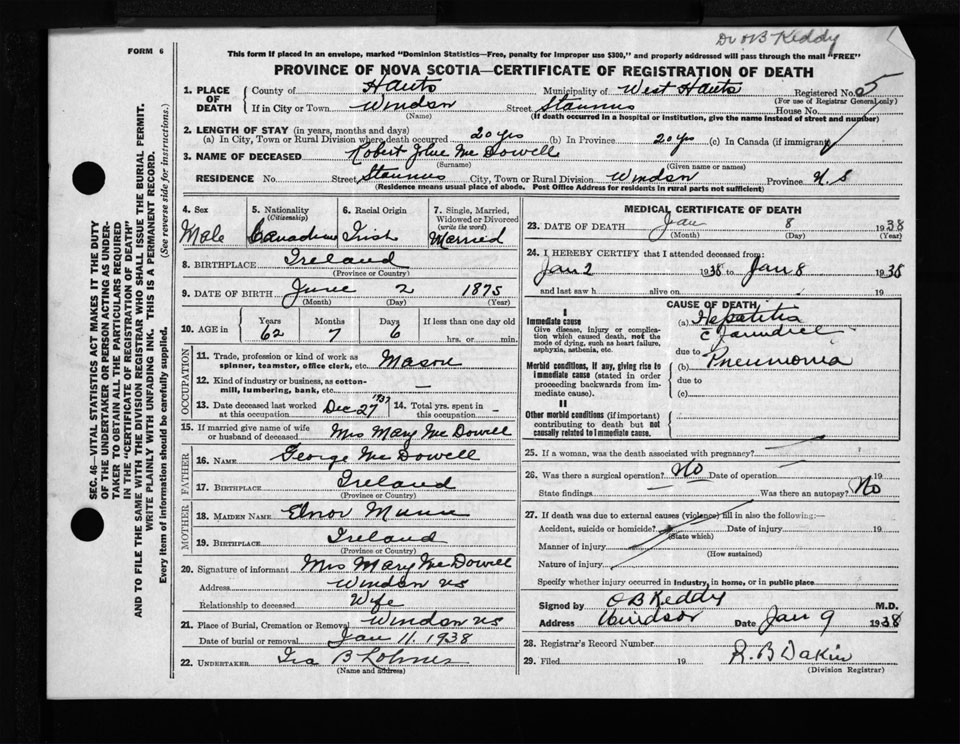 Dr OB Keddy
FORM 6
This form if placed in an envelope, marked "Dominion Statistics—Free, penalty for improper use $300," and properly addressed will pass through the mail "FREE"
PROVINCE OF NOVA SCOTIA—CERTIFICATE OF REGISTRATION OF DEATH
1. PLACE OF DEATH
County of Hants Municipality of West Hants Registered No. 5
(For use of Registrar General only)
If in City or Town Windsor Street Stannus House No.
(Name) (If death occurred in a hospital or institution, give the name instead of street and number)
2. LENGTH OF STAY (in years, months and days)
(a) In City, Town or Rural Division where death occurred 20 yrs (b) In Province 20 yrs (c) In Canada (if immigrant)
3. NAME OF DECEASED Robert John Mc Dowell
(Surname) (Given name or names)
RESIDENCE No. Street Stannus City, Town or Rural Division Windsor Province N.S
(Residence means usual place of abode. Post Office Address for residents in rural parts not sufficient)
4. Sex 5. Nationality (Citizenship) 6. Racial Origin 7. Single, Married, Widowed or Divorced (write the word)
Male Canadian Irish Married
8. BIRTHPLACE Ireland
(Province or Country)
9. DATE OF BIRTH June 2 1875
(Month) (Day) (Year)
10. AGE in Years Months Days If less than one day old
62 7 6 hrs. or min.
OCCUPATION
11. Trade, profession or kind of work as spinner, teamster, office clerk, etc. Mason
12. Kind of industry or business, as cotton-mill, lumbering, bank, etc. —
13. Date deceased last worked at this occupation Dec 27 1937 14. Total yrs. spent in this occupation -
15. If married give name of wife or husband of deceased Mrs Mary Mc Dowell
FATHER
16. NAME George Mc Dowell
17. BIRTHPLACE Ireland
(Province or Country)
MOTHER
18. MAIDEN NAME Elnor
19. BIRTHPLACE Ireland
(Province or Country)
20. Signature of informant Mrs Mary Mc Dowell
Address Windsor NS
Relationship to deceased Wife
21. Place of Burial, Cremation or Removal Windsor NS
Date of burial or removal Jan 11. 1938
22. UNDERTAKER Ira B Lohnes
(Name and address)
MEDICAL CERTIFICATE OF DEATH
23. DATE OF DEATH Jan 8 1938
(Month) (Day) (Year)
24. I HEREBY CERTIFY that I attended deceased from:
Jan 2 1938 to Jan 8 1938
and last saw h alive on 19
CAUSE OF DEATH
I
Immediate cause (a) Hepatitis
Give disease, injury or complication which caused death, not the mode of dying, such as heart failure, asphyxia, asthenia, etc.
c Jaundice
due to
Morbid conditions, if any, giving rise to immediate cause (stated in order proceeding backwards from immediate cause).
(b) Pneumonia
due to
(c)
II
Other morbid conditions (if important) contributing to death but not causally related to immediate cause.
25. If a woman, was the death associated with pregnancy?
26. Was there a surgical operation? No Date of operation 19
State findings Was there an autopsy? No
27. If death was due to external causes (violence) fill in also the following:—
Accident, suicide or homicide? Date of injury 19
(State which)
Manner of injury
(How sustained)
Nature of injury
Specify whether injury occurred in industry, in home, or in public place
Signed by OB Keddy M.D.
Address Windsor Date Jan 9 1938
28. Registrar's Record Number
29. Filed 19 R. B Dakin
(Division Registrar)
SEC. 46—VITAL STATISTICS ACT MAKES IT THE DUTY
OF THE UNDERTAKER OR PERSON ACTING AS UNDER-
TAKER TO OBTAIN ALL THE PARTICULARS REQUIRED
IN THE "CERTIFICATE OF REGISTRATION OF DEATH"
AND TO FILE THE SAME WITH THE DIVISION REGISTRAR WHO SHALL ISSUE THE BURIAL PERMIT.
WRITE PLAINLY WITH UNFADING INK. THIS IS A PERMANENT RECORD.
Every item of information should be carefully supplied. (See reverse side for instructions.)